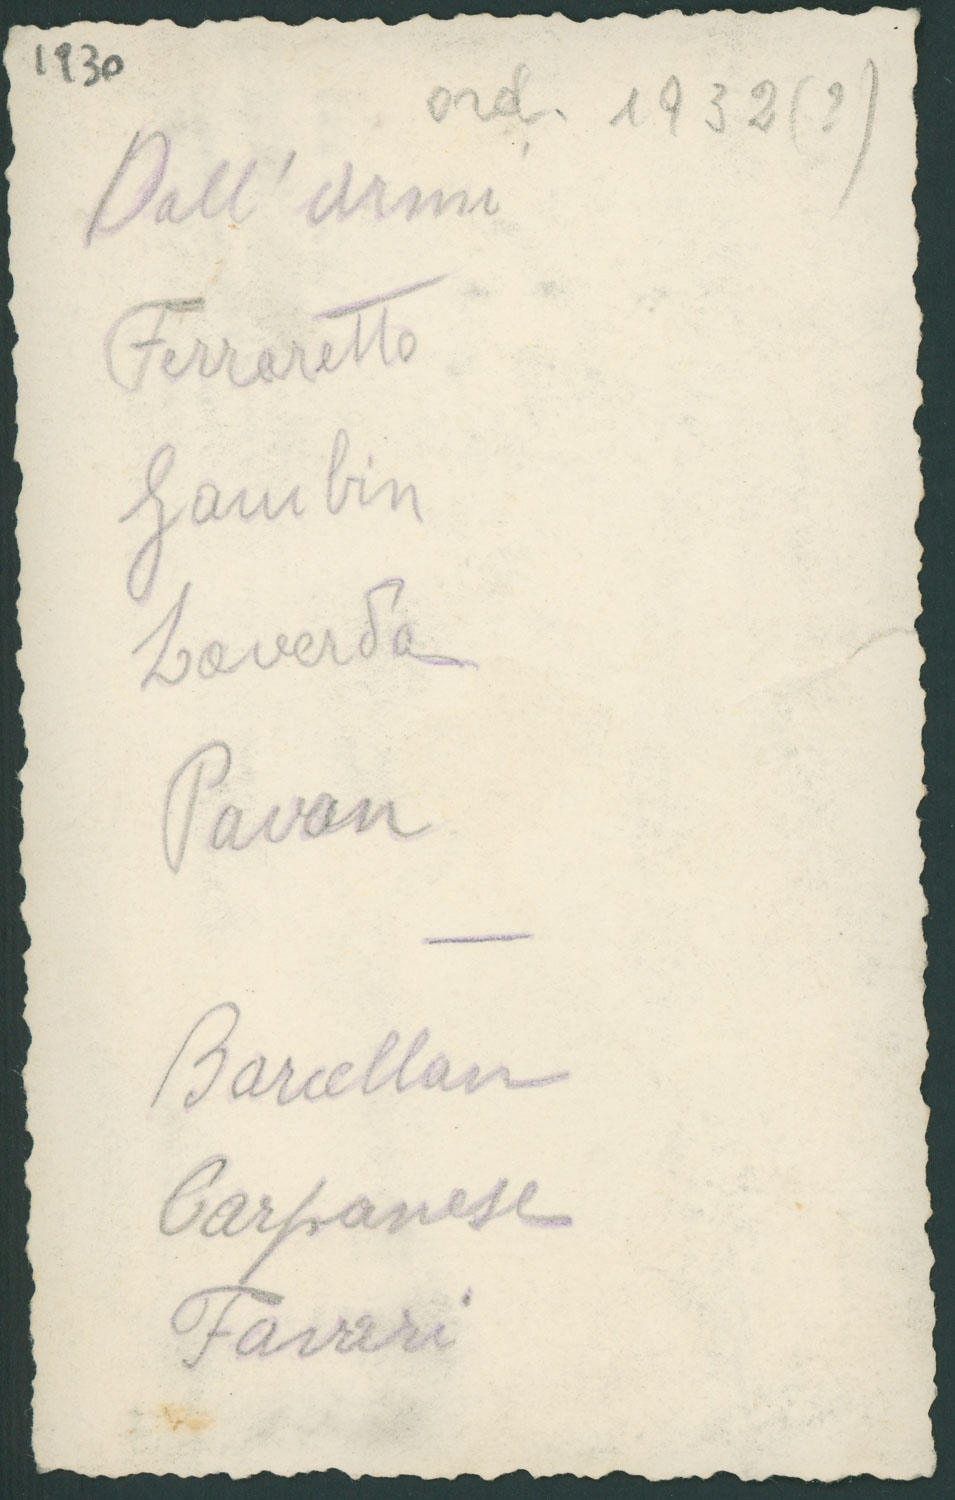 1930
ord. 1932(?)
Dall' Armi
Ferraretto
Gambin
Laverda
Pavan
—
Barcellan
Carpanese
Faveri